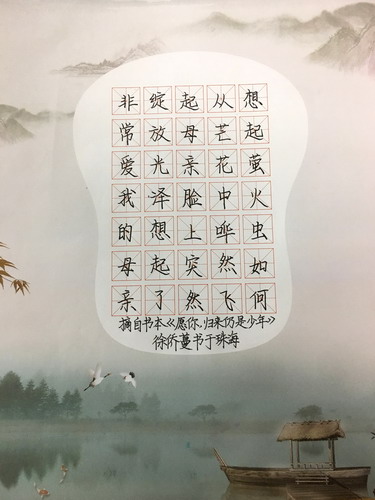 想起萤火虫如何
从芒花中哗然飞
起母亲脸上突然
绽放光泽想起了
非常爱我的母亲
摘自书本《愿你,归来仍是少年》
徐侨蔓书于珠海